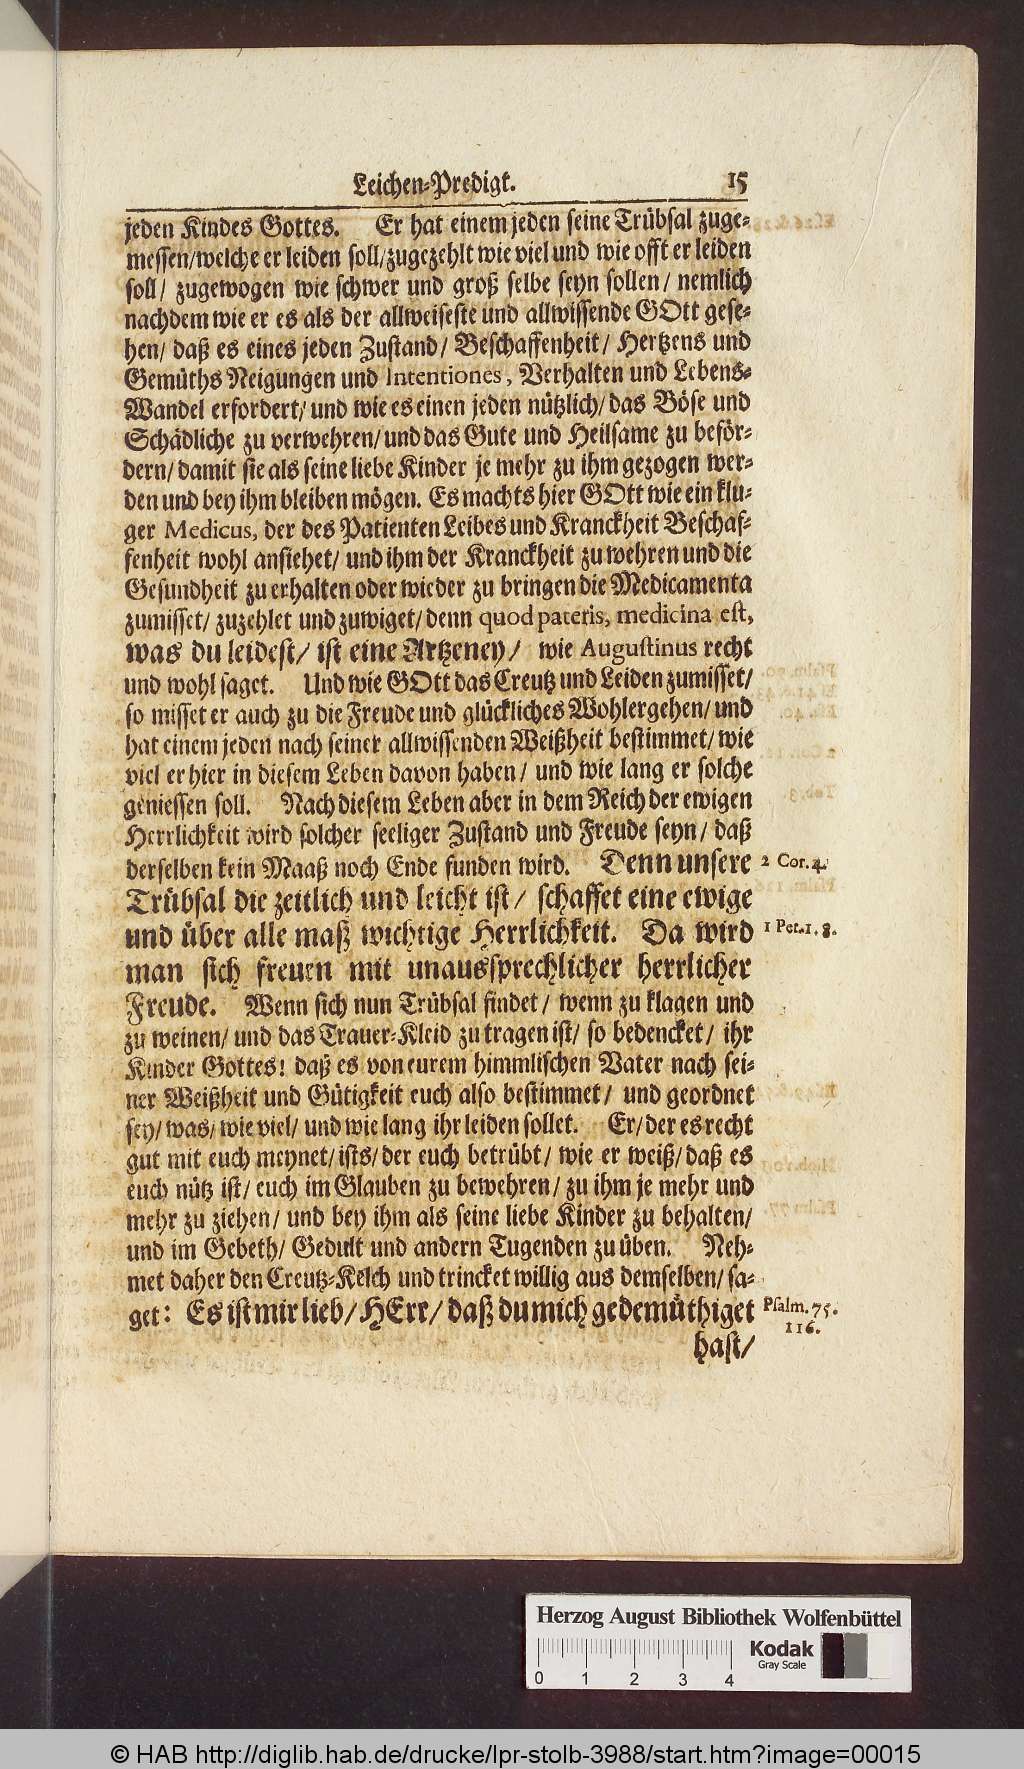 Leichen-Predigt. 15
jeden Kindes Gottes. Er hat einem jeden seine Trübsal zuge-
messen/welche er leiden soll/zugezehlt wie viel und wie offt er leiden
soll/ zugewogen wie schwer und groß selbe seyn sollen/ nemlich
nachdem wie er es als der allweiseste und allwissende GOtt gese-
hen/ daß es eines jeden Zustand/ Beschaffenheit/ Hertzens und
Gemüths Neigungen und Intentiones, Verhalten und Lebens-
Wandel erfordert/ und wie es einen jeden nützlich/ das Böse und
Schädliche zu verwehren/ und das Gute und Heilsame zu beför-
dern/ damit sie als seine liebe Kinder je mehr zu ihm gezogen wer-
den und bey ihm bleiben mögen. Es machts hier GOtt wie ein klu-
ger Medicus, der des Patienten Leibes und Kranckheit Beschaf-
fenheit wohl ansiehet/ und ihm der Kranckheit zu wehren und die
Gesundheit zu erhalten oder wieder zu bringen die Medicamenta
zumisset/ zuzehlet und zuwiget/ denn quod pateris, medicina est,
was du leidest/ ist eine Artzeney/ wie Augustinus recht
und wohl saget. Und wie GOtt das Creutz und Leiden zumisset/
so misset er auch zu die Freude und glückliches Wohlergehen/ und
hat einem jeden nach seiner allwissenden Weißheit bestimmet/ wie
viel er hier in diesem Leben davon haben/ und wie lang er solche
geniessen soll. Nach diesem Leben aber in dem Reich der ewigen
Herrlichkeit wird solcher seeliger Zustand und Freude seyn/ daß
derselben kein Maaß noch Ende funden wird. Denn unsere 2 Cor. 4.
Trübsal die zeitlich und leicht ist/ schaffet eine ewige
und über alle maß wichtige Herrlichkeit. Da wird 1 Pet. 1. 8.
man sich freuen mit unaussprechlicher herrlicher
Freude. Wenn sich nun Trübsal findet/ wenn zu klagen und
zu weinen/ und das Trauer-Kleid zu tragen ist/ so bedencket/ ihr
Kinder Gottes! daß es von eurem himmlischen Vater nach sei-
ner Weißheit und Gütigkeit euch also bestimmet/ und geordnet
sey/ was/ wie viel/ und wie lang ihr leiden sollet. Er/ der es recht
gut mit euch meynet/ ists/ der euch betrübt/ wie er weiß/ daß es
euch nütz ist/ euch im Glauben zu bewehren/ zu ihm je mehr und
mehr zu ziehen/ und bey ihm als seine liebe Kinder zu behalten/
und im Gebeth/ Gedult und andern Tugenden zu üben. Neh-
met daher den Creutz-Kelch und trincket willig aus demselben/ sa-
get: Es ist mir lieb/ HErr/ daß du mich gedemüthiget Psalm. 75.
116.
hast/
Herzog August Bibliothek Wolfenbüttel
Kodak
Gray Scale
0 1 2 3 4
© HAB http://diglib.hab.de/drucke/lpr-stolb-3988/start.htm?image=00015